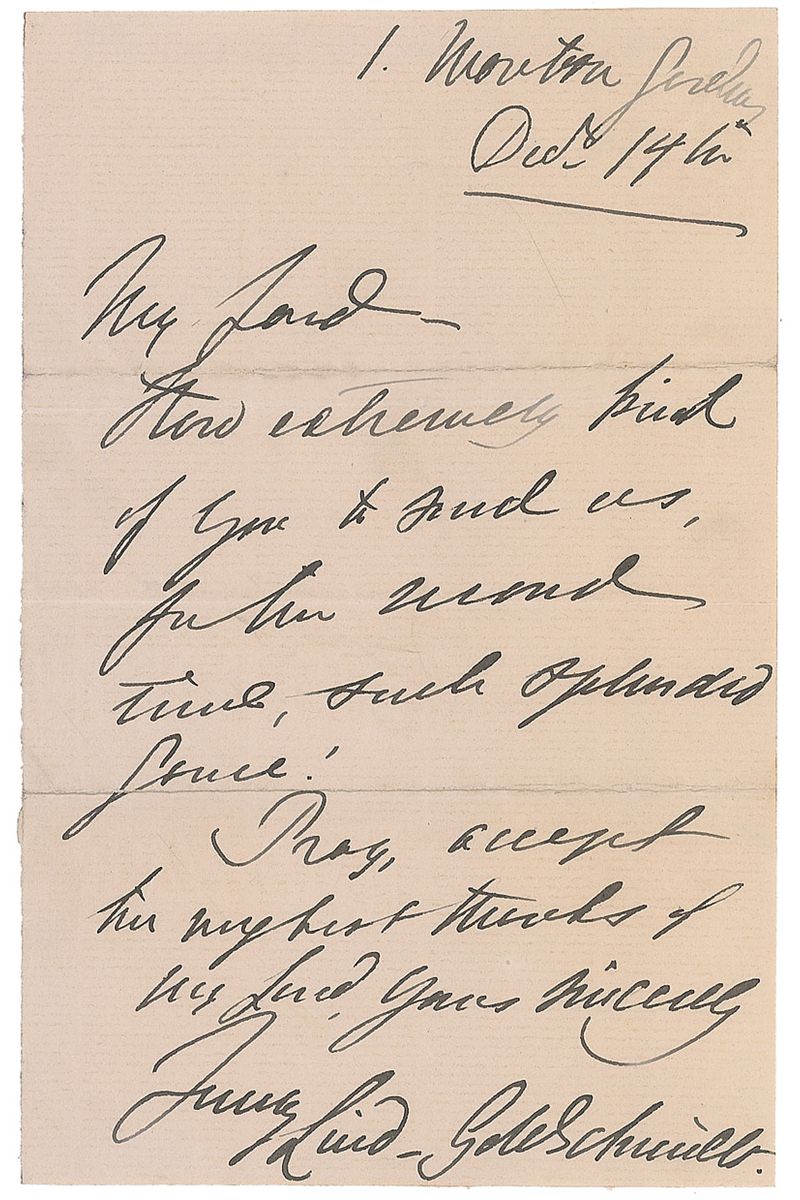 1. Moreton Gardens
Decr. 14th
My Lord –
How extremely kind
of you to send us,
for the second
time, such splendid
Game!
Pray, accept
the very best thanks of
my Lord, yours sincerely
Jenny
Lind – Goldschmidt.